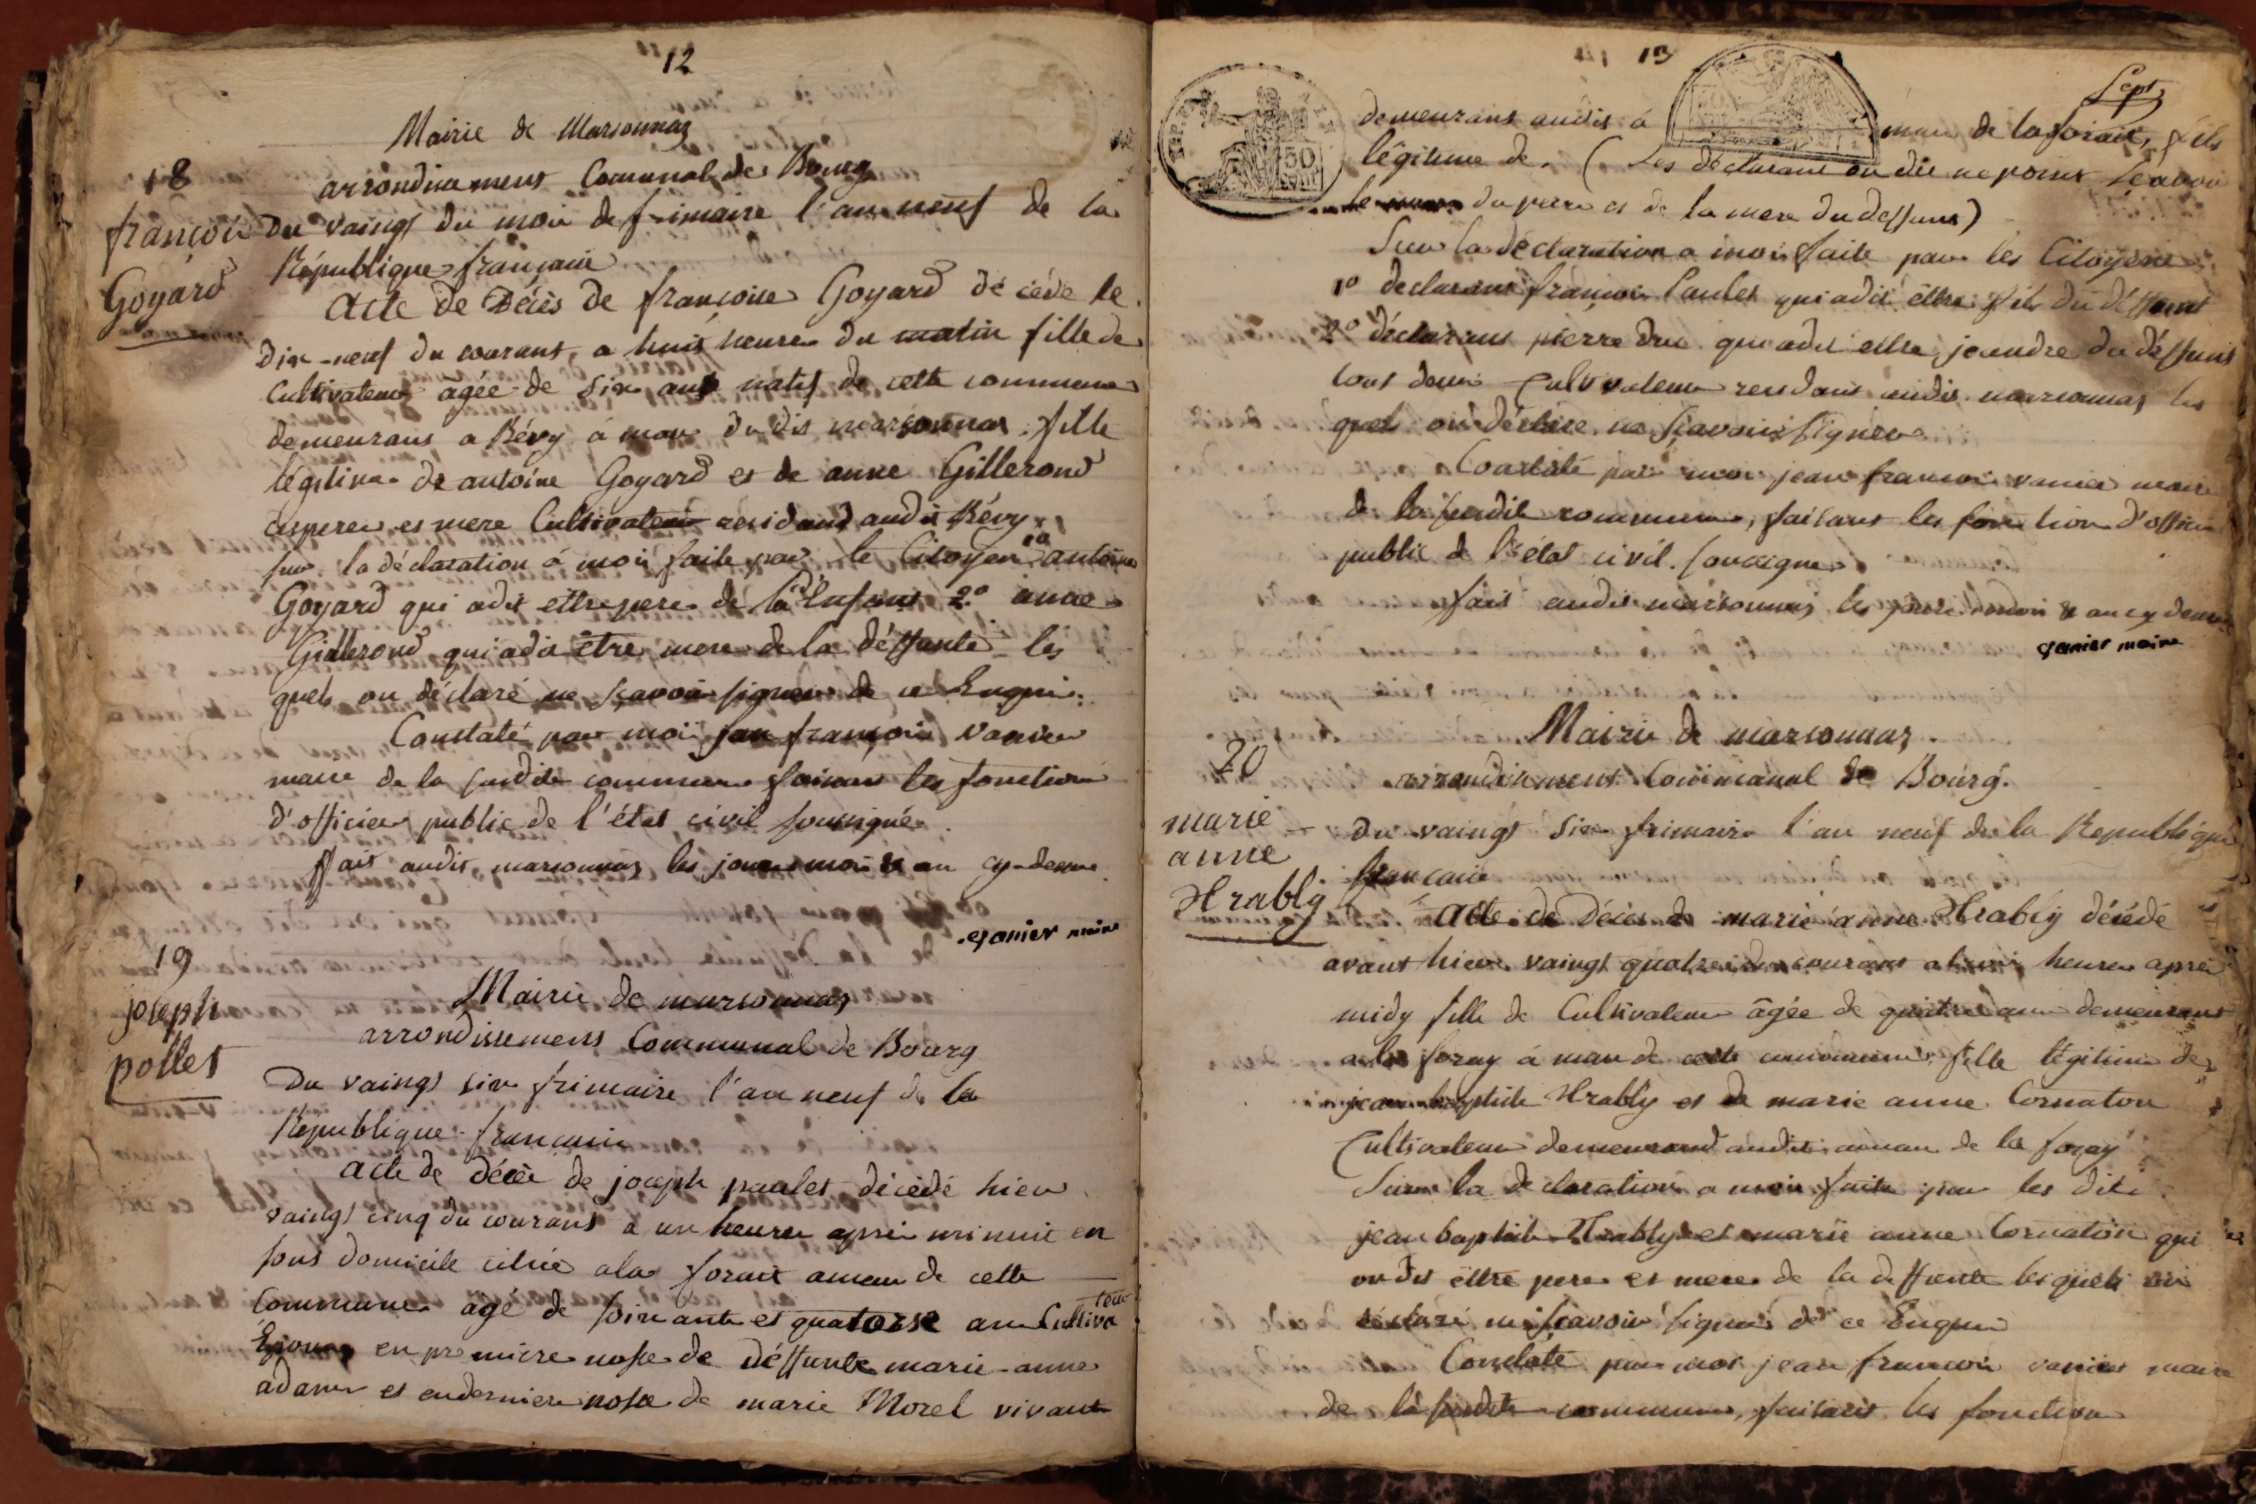 12
Mairie de Marsonnaz
arrondissement Communal de Bourg
18
françoise
Goyard
Du vaingt du moi de frimaire l'an neuf de la
République françaice
Acte de Décès de françoise Goyard décédé le
Dix-neuf du courant, a huit heure du matin fille de
Cultivateur, agée de six ans natif de cette commune
demeurant a Révy a mau du dit marsonnas. fille
légitime de antoine Goyard et de anne Gillerond
ces pere et mere Cultivateur résidand audit Révy.
sur la déclaration á moi faite par le Citoyen 1º antoine
Goyard qui adit ettre pere de la l'Enfant 2º anne
Gillerond qui adit être mere de la déffunte les
quels on déclaré ne sçavoir signer de ce Enquis.
Constaté par moi jean françois vanier
maire de la susdite commune faisant les fonction
d'officier public de l'état civil soussigné.
fait audit marsonnaz les jour moi & an cy-dessus.
vanier maire
19
joseph
pollet
Mairie de marsonnaz
arrondissement Communal de Bourg
Du vaingt six frimaire l'an neuf de la
République francaice
acte de décès de joseph paulet décédé hier
vaingt cinq du courant a un heure après minuit en
sous domicile citué ala forait amau de cette
Commune agé de soixante et quatorse ans Cultiva
teur
Epoux en première nosse de déffunte marie-anne
adam et en dernière nosse de marie Morel vivant
13
Sept
demeurant audit a mau de la forait, fils
légitime de. (Les déclarant on dit ne point sçavoir
le nom du pere et de la mere du deffunt)
Sur la déclaration a moi faite par les Citoyens
1º déclarant françois Paulet qui adit ettre fils du déffunt
2º déclarant pierre Duc qui adit ettre jeandre du déffunt
tout deux Cultivateur residant audit marsonnaz les
quels on déclaré ne sçavoir signer
Constaté par moi jean françois vanier maire
de la susdite commune, faisant les fonction d'officier
public de l'état civil. soussigné
fait audit marsonnaz les jour moi & an cy dessus
vanier maire
Mairie de marsonnaz
arrondissement Communal de Bourg.
20
marie
anne
Hrably
du vaingt six frimaire l'an neuf de la République
françaice
Acte de Décès de marie anne Hrably décédé
avant hier vaingt quatre du courant a heure après
midy fille de Cultivateur âgée de quatre ans demeurant
a la foray á mau de cette commune fille légitime de
jean baptiste Hrably et de marie anne Cornaton
Cultivateur demeurand audit amau de la foray
Sur la déclaration a moi faite par les dits
jean baptiste Hrably et marie anne Cornaton qui
on dit ettre pere et mere de la deffunte lesquels on
déclaré ne sçavoir signer de ce Enquis
Constaté par moi jean françois vanier maire
de la susdite commune, faisant les fonction